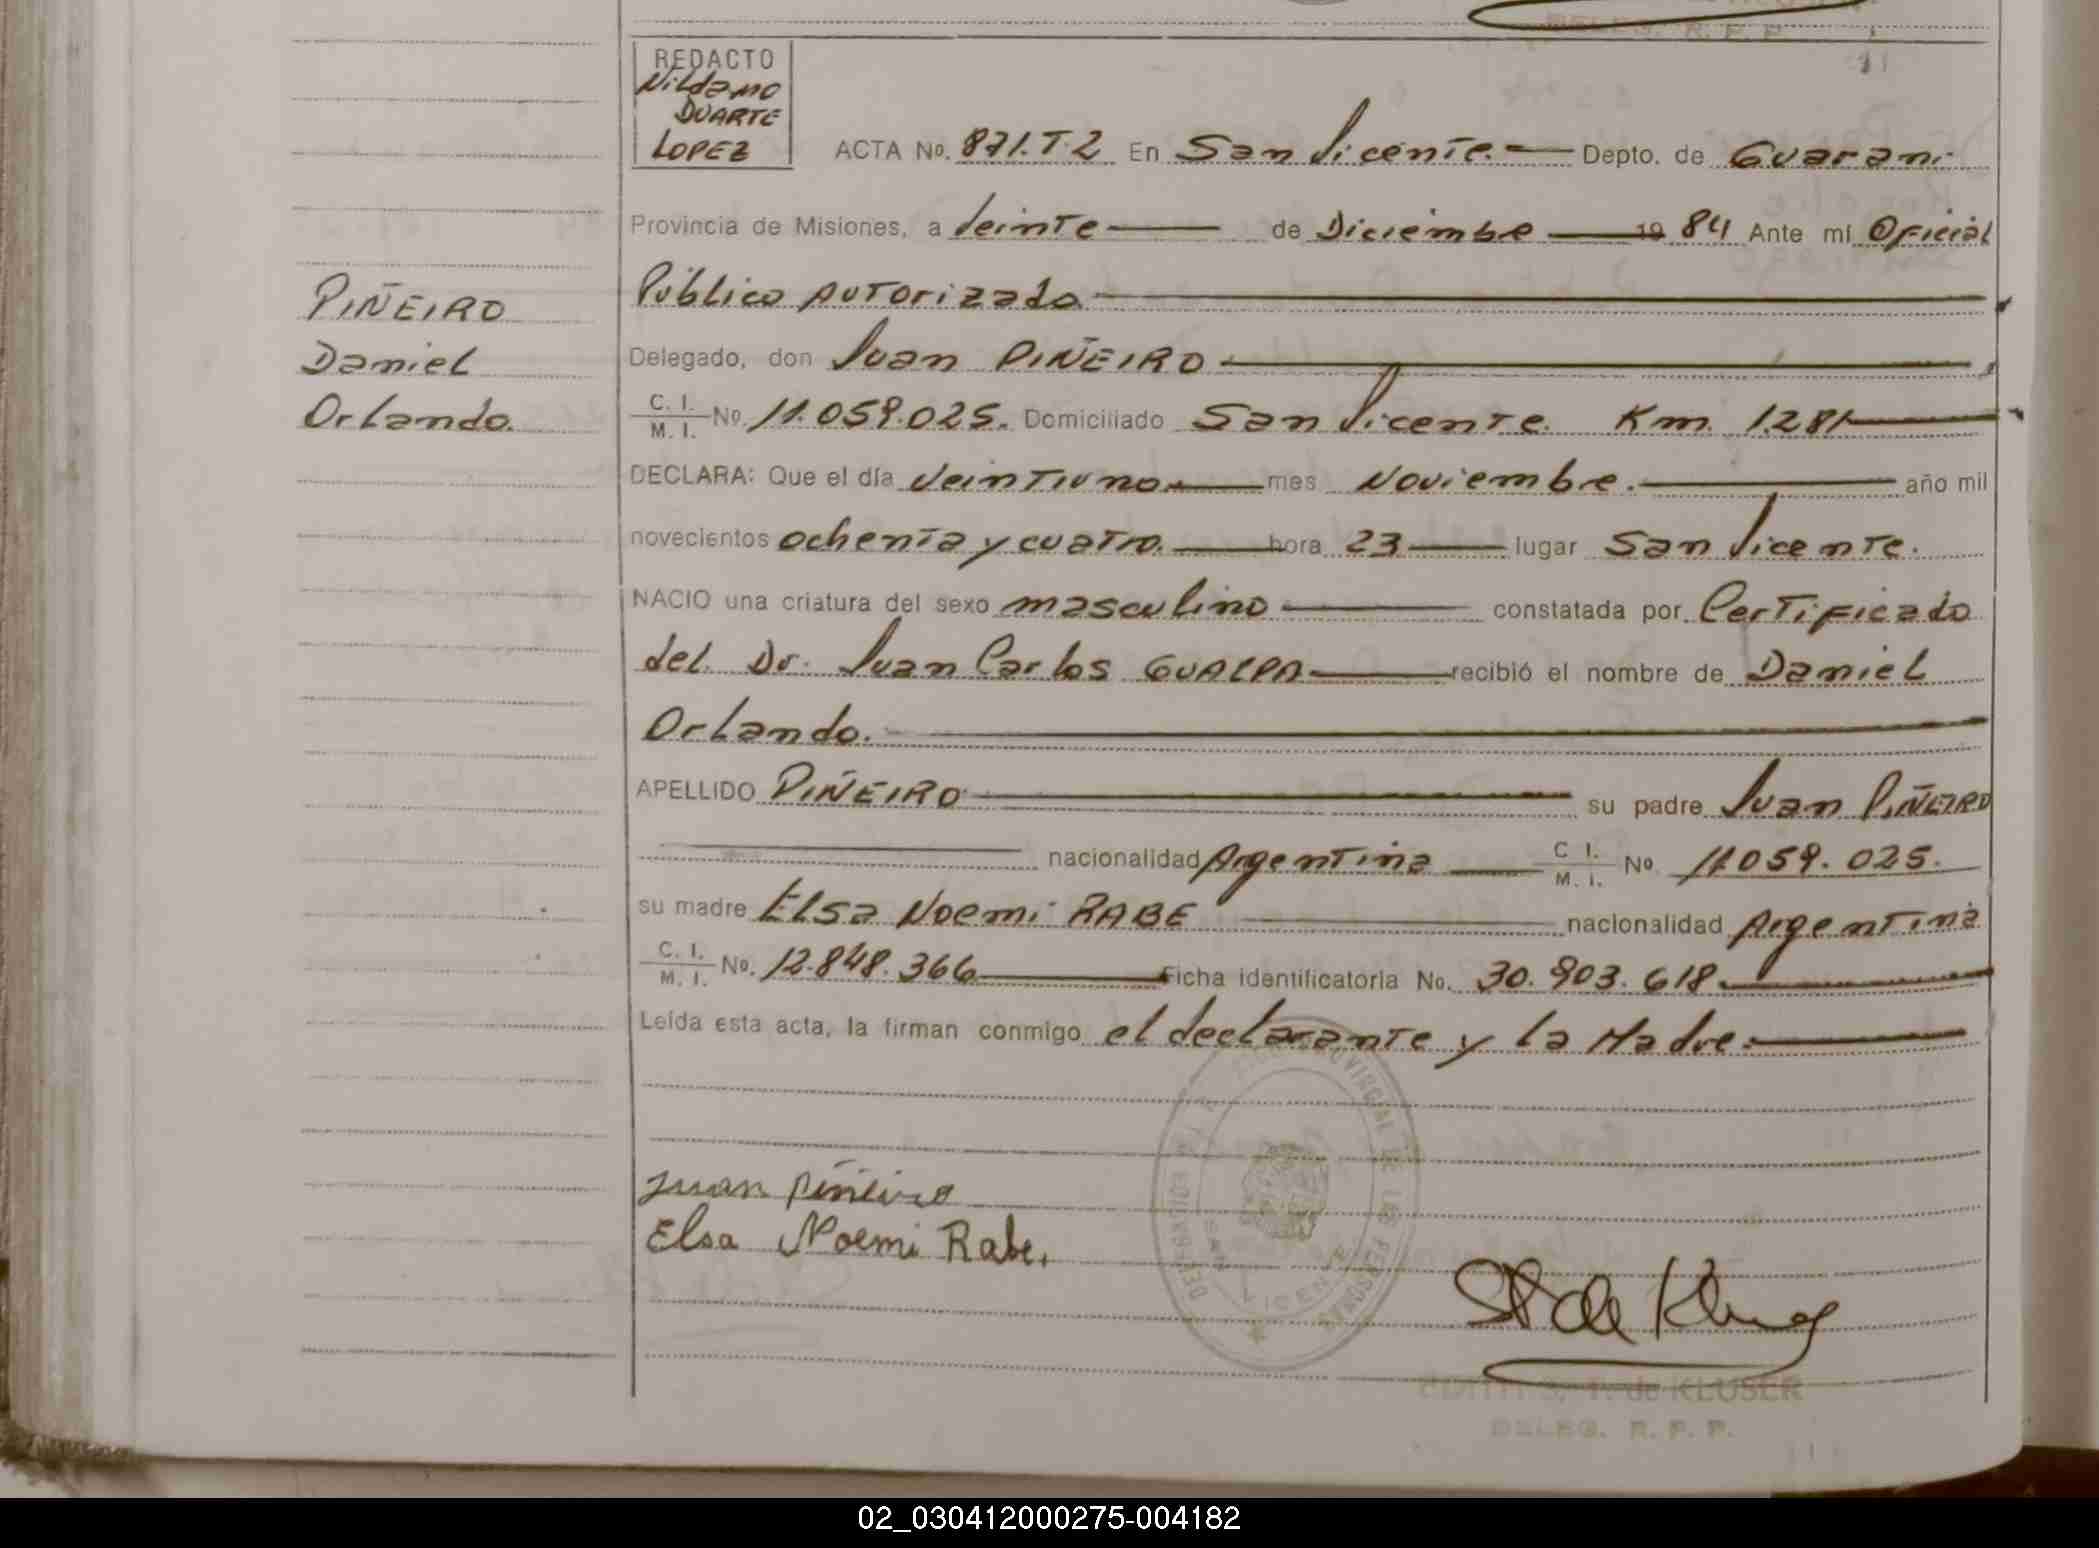 REDACTO
Nildamo
DUARTE
LOPEZ
ACTA No. 871.T.2 En San Vicente. Depto. de Guarani
Provincia de Misiones, a Veinte de Diciembre 19 84 Ante mí Oficial
Público Autorizado
PIÑEIRO
Daniel
Orlando.
Delegado, don Juan PIÑEIRO
C. I. M. I. No. 11.059.025. Domiciliado San Vicente. Km. 1281
DECLARA: Que el día Veintiuno mes Noviembre. año mil
novecientos ochenta y cuatro. hora 23 lugar San Vicente.
NACIO una criatura del sexo masculino constatada por Certificado
del Dr. Juan Carlos GUALPA recibió el nombre de Daniel
Orlando.
APELLIDO PIÑEIRO su padre Juan PIÑEIRO
nacionalidad Argentina C I. M. I. No. 11059.025.
su madre Elsa Noemi RABE nacionalidad Argentina
C. I. M. I. No. 12.848.366 Ficha identificatoria No. 30.903.618
Leída esta acta, la firman conmigo el declarante y la Madre.
Juan Piñeiro
Elsa Noemi Rabe.
SAN VICENTE
de KLUSER
DELEG. R. P. P.
02_030412000275-004182